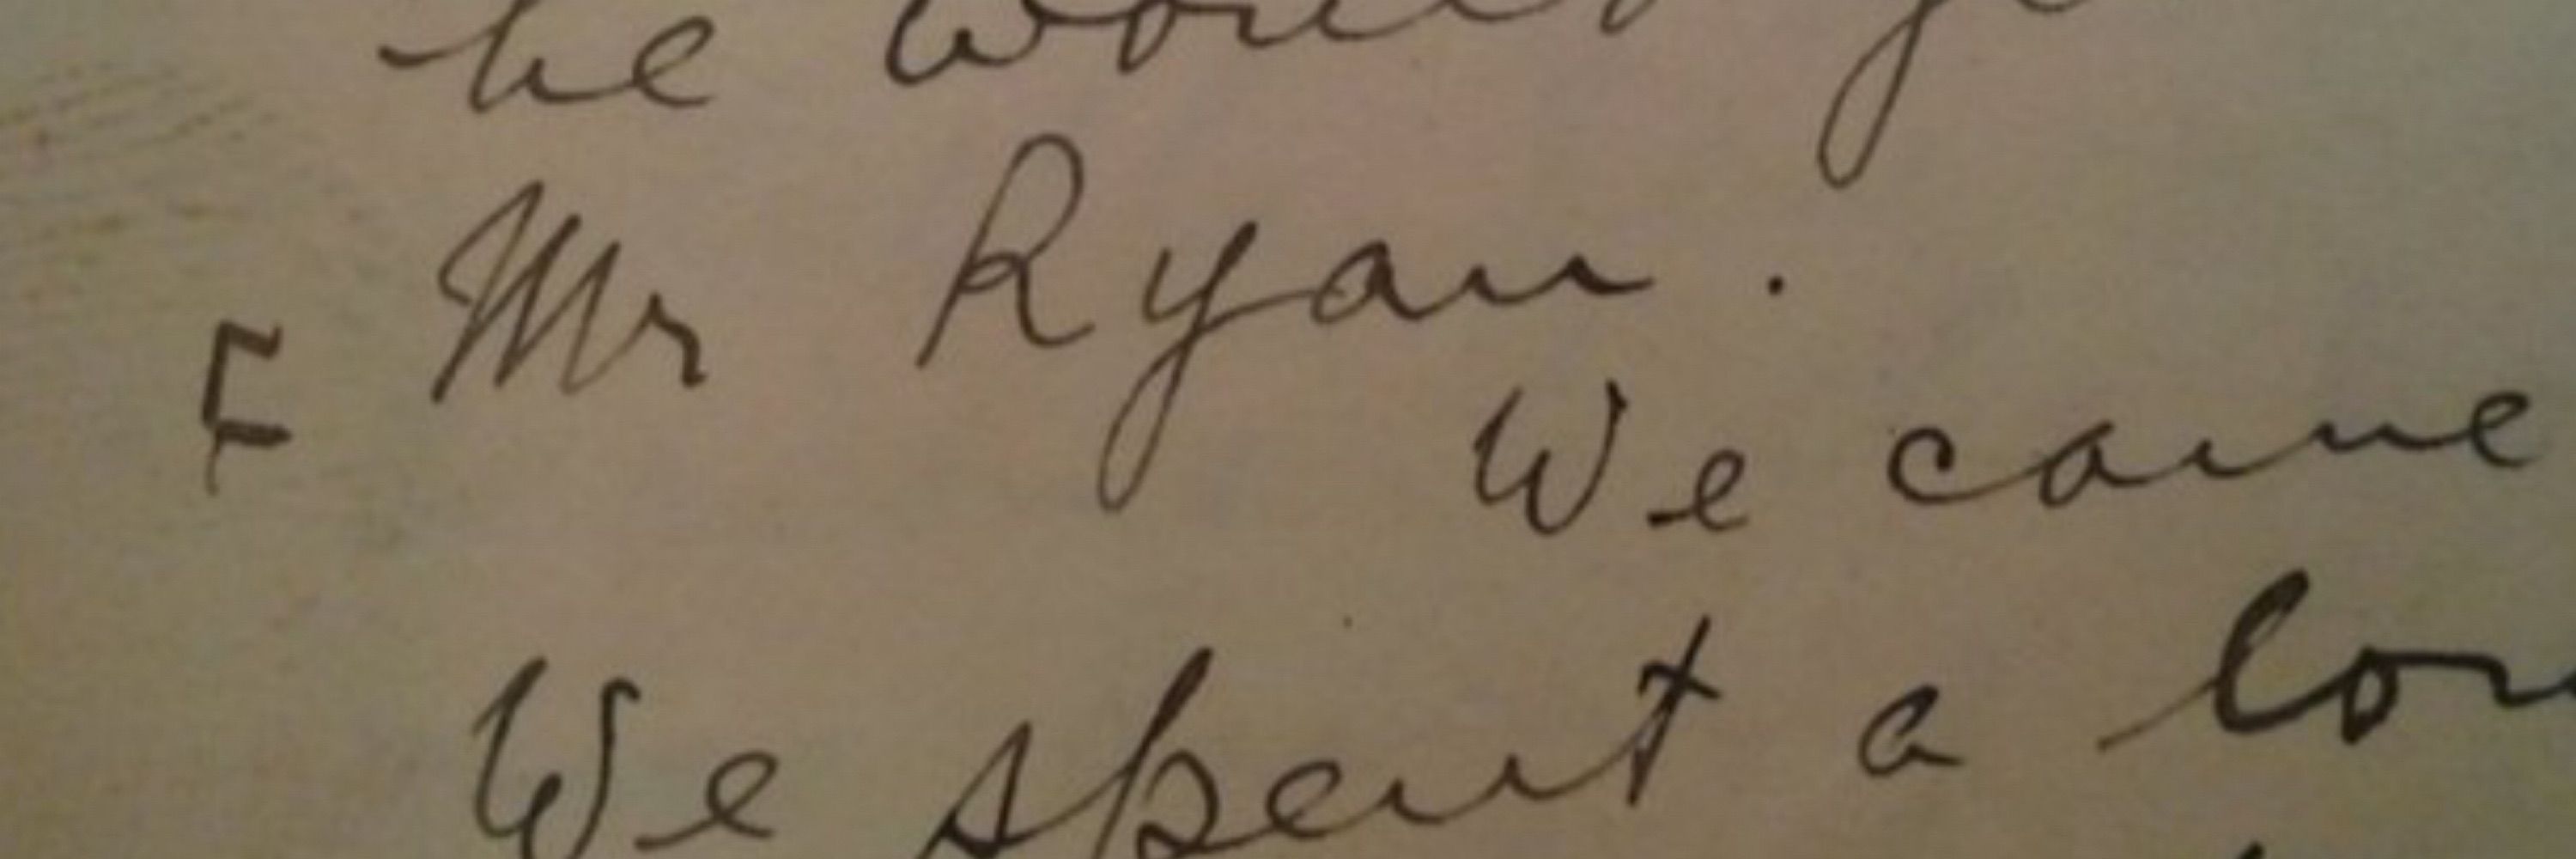 he would
Mr Ryan.
We came
We spent a